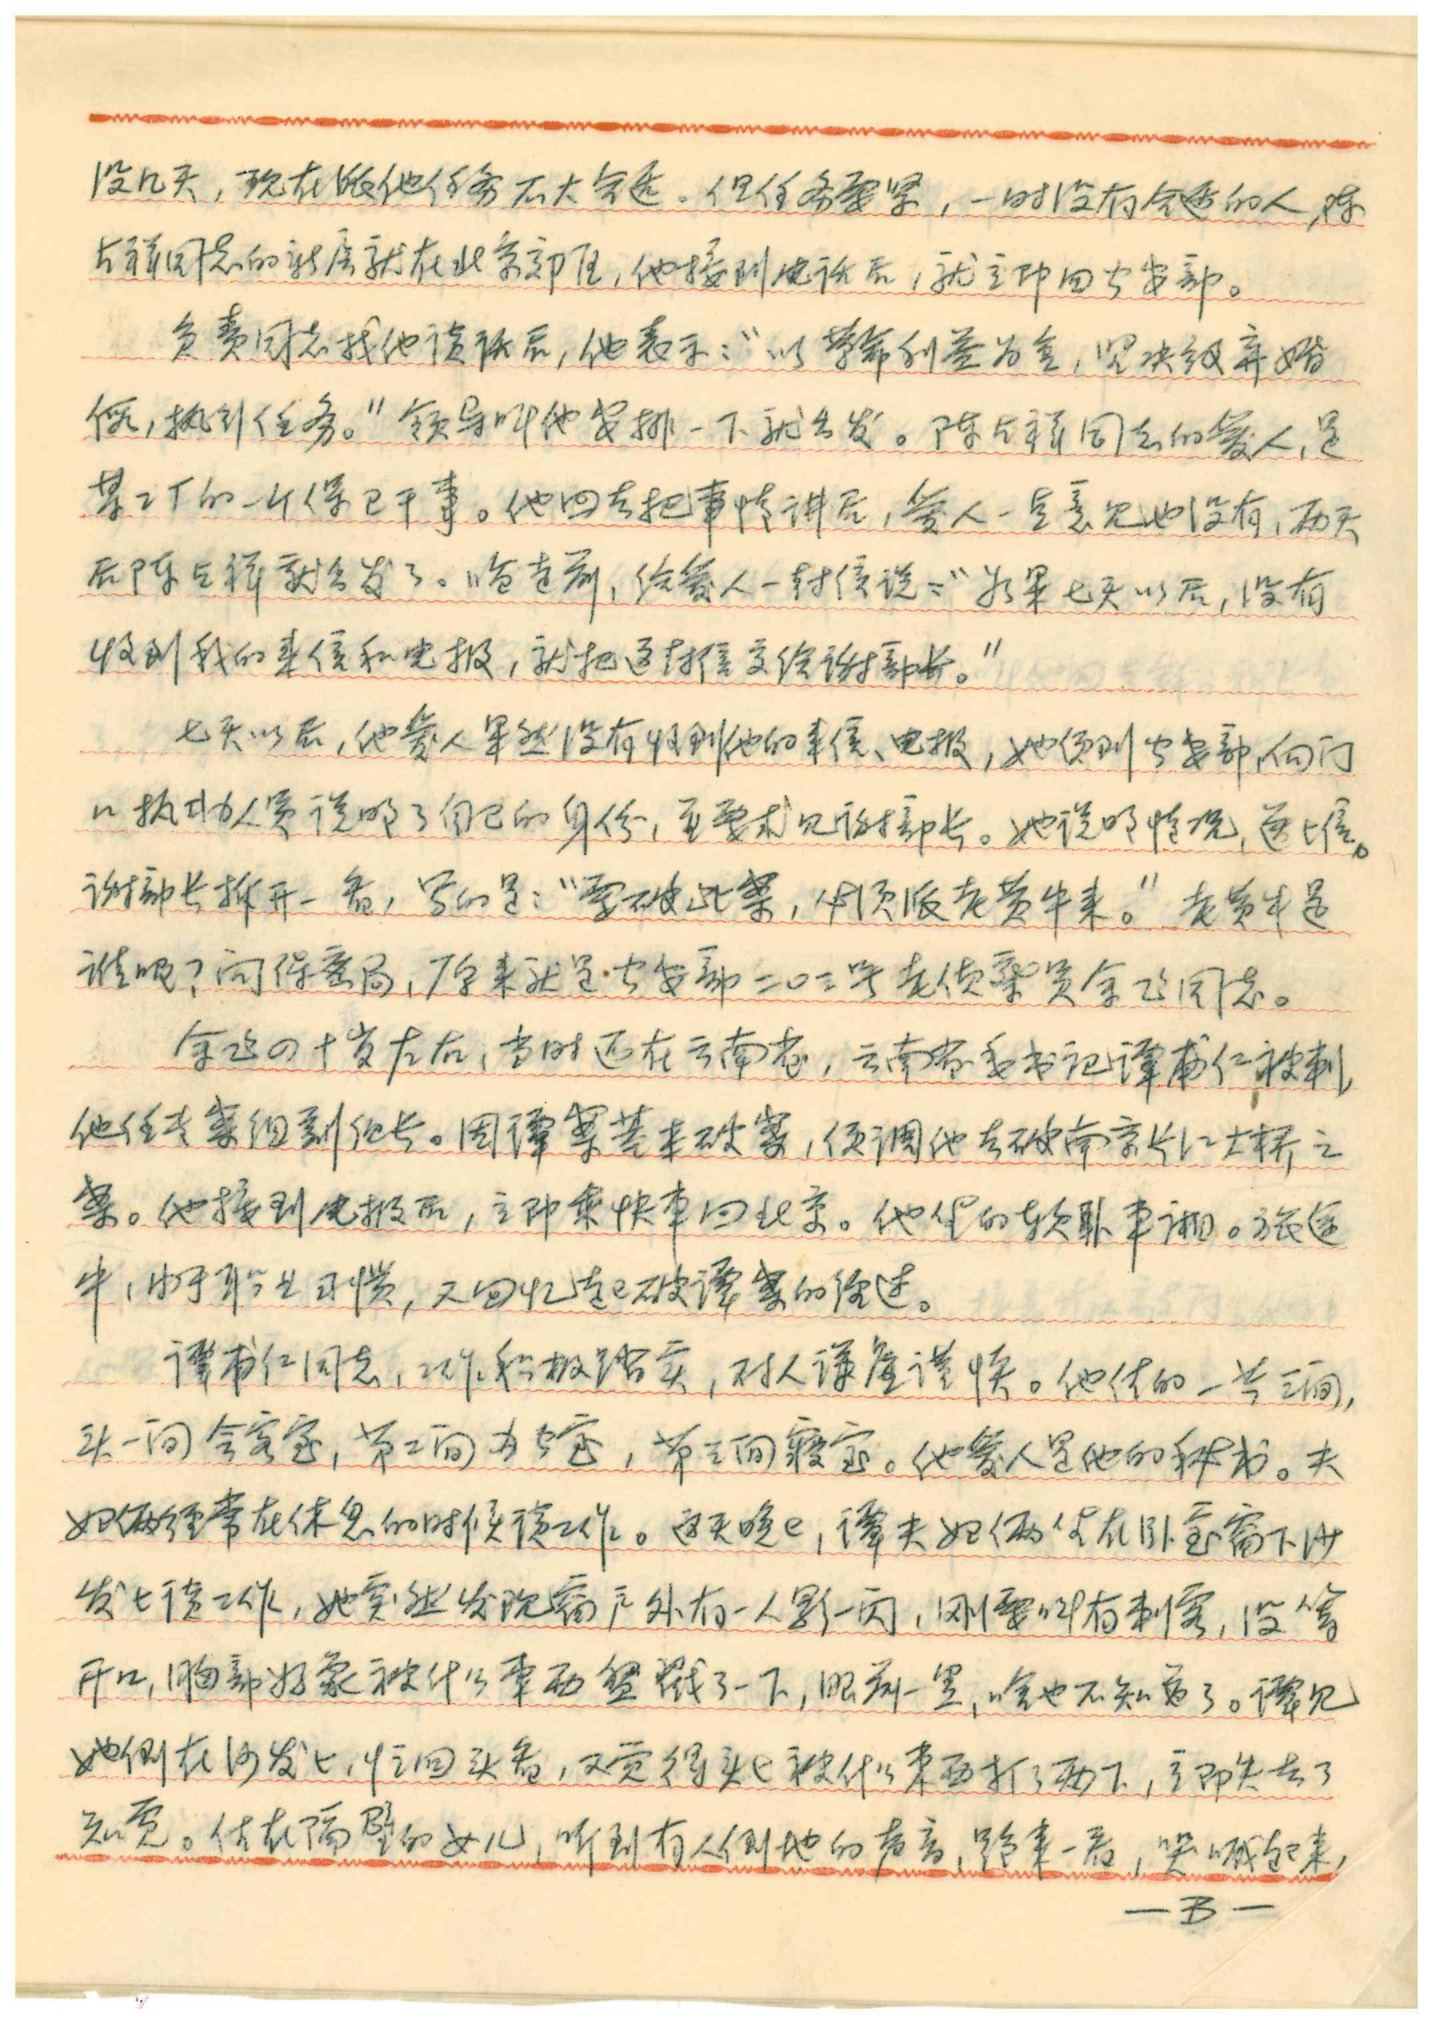 没几天，现在派他任务不大合适。但任务要紧，一时没有合适的人，陈
占祥同志的新房就在北京郊区，他接到电话后，就立即回公安部。
负责同志找他谈话后，他表示：“以革命利益为重，坚决放弃婚
假，执行任务。”领导叫他安排一下就出发。陈占祥同志的爱人，是
某工厂的一个保卫干事。他回去把事情讲后，爱人一点意见也没有，两天
后陈占祥就出发了。临走前，给爱人一封信说：“如果七天以后，没有
收到我的来信和电报，就把这封信交给谢部长。”
七天以后，他爱人果然没有收到他的来信、电报，她便到公安部，向门
口执勤人员说明了自己的身份，并要求见谢部长。她说明情况，送上信。
谢部长拆开一看，写的是：“要破此案，必须派老黄牛来。”老黄牛是
谁呢？问保密局，原来就是公安部二〇三号老侦察员余飞同志。
余飞四十岁左右，当时还在云南省，云南省委书记谭甫仁被刺，
他任专案组副组长。因谭案基本破案，便调他去破南京长江大桥之
案。他接到电报后，立即乘快车回北京。他坐的软卧车厢。旅途
中，由于职业习惯，又回忆起已破谭案的经过。
谭甫仁同志，工作积极踏实，对人谦虚谨慎。他住的一共三间，
头一间会客室，第二间办公室，第三间寝室。他爱人是他的秘书。夫
妇俩经常在休息的时候谈工作。这天晚上，谭夫妇俩坐在卧室窗下沙
发上谈工作，她突然发现窗户外有一人影一闪，刚要叫有刺客，没等
开口，胸部好象被什么东西猛戳了一下，眼前一黑，啥也不知道了。谭见
她倒在沙发上，忙回头看，又觉得头上被什么东西打了两下，立即失去了
知觉。住在隔壁的女儿，听到有人倒地的声音，跑来一看，哭喊起来，
—3—